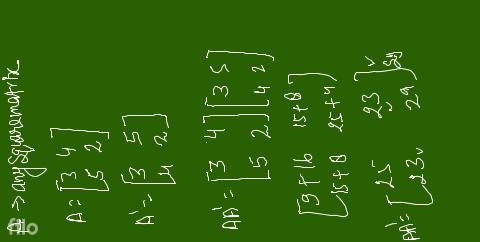 A => any square matrix
A = [3 4
5 2]
A' = [3 5
4 2]
AA' = [3 4
5 2] [3 5
4 2]
[9+16 15+8
15+8 25+4]
AA' = [25 23
23 29]
filo